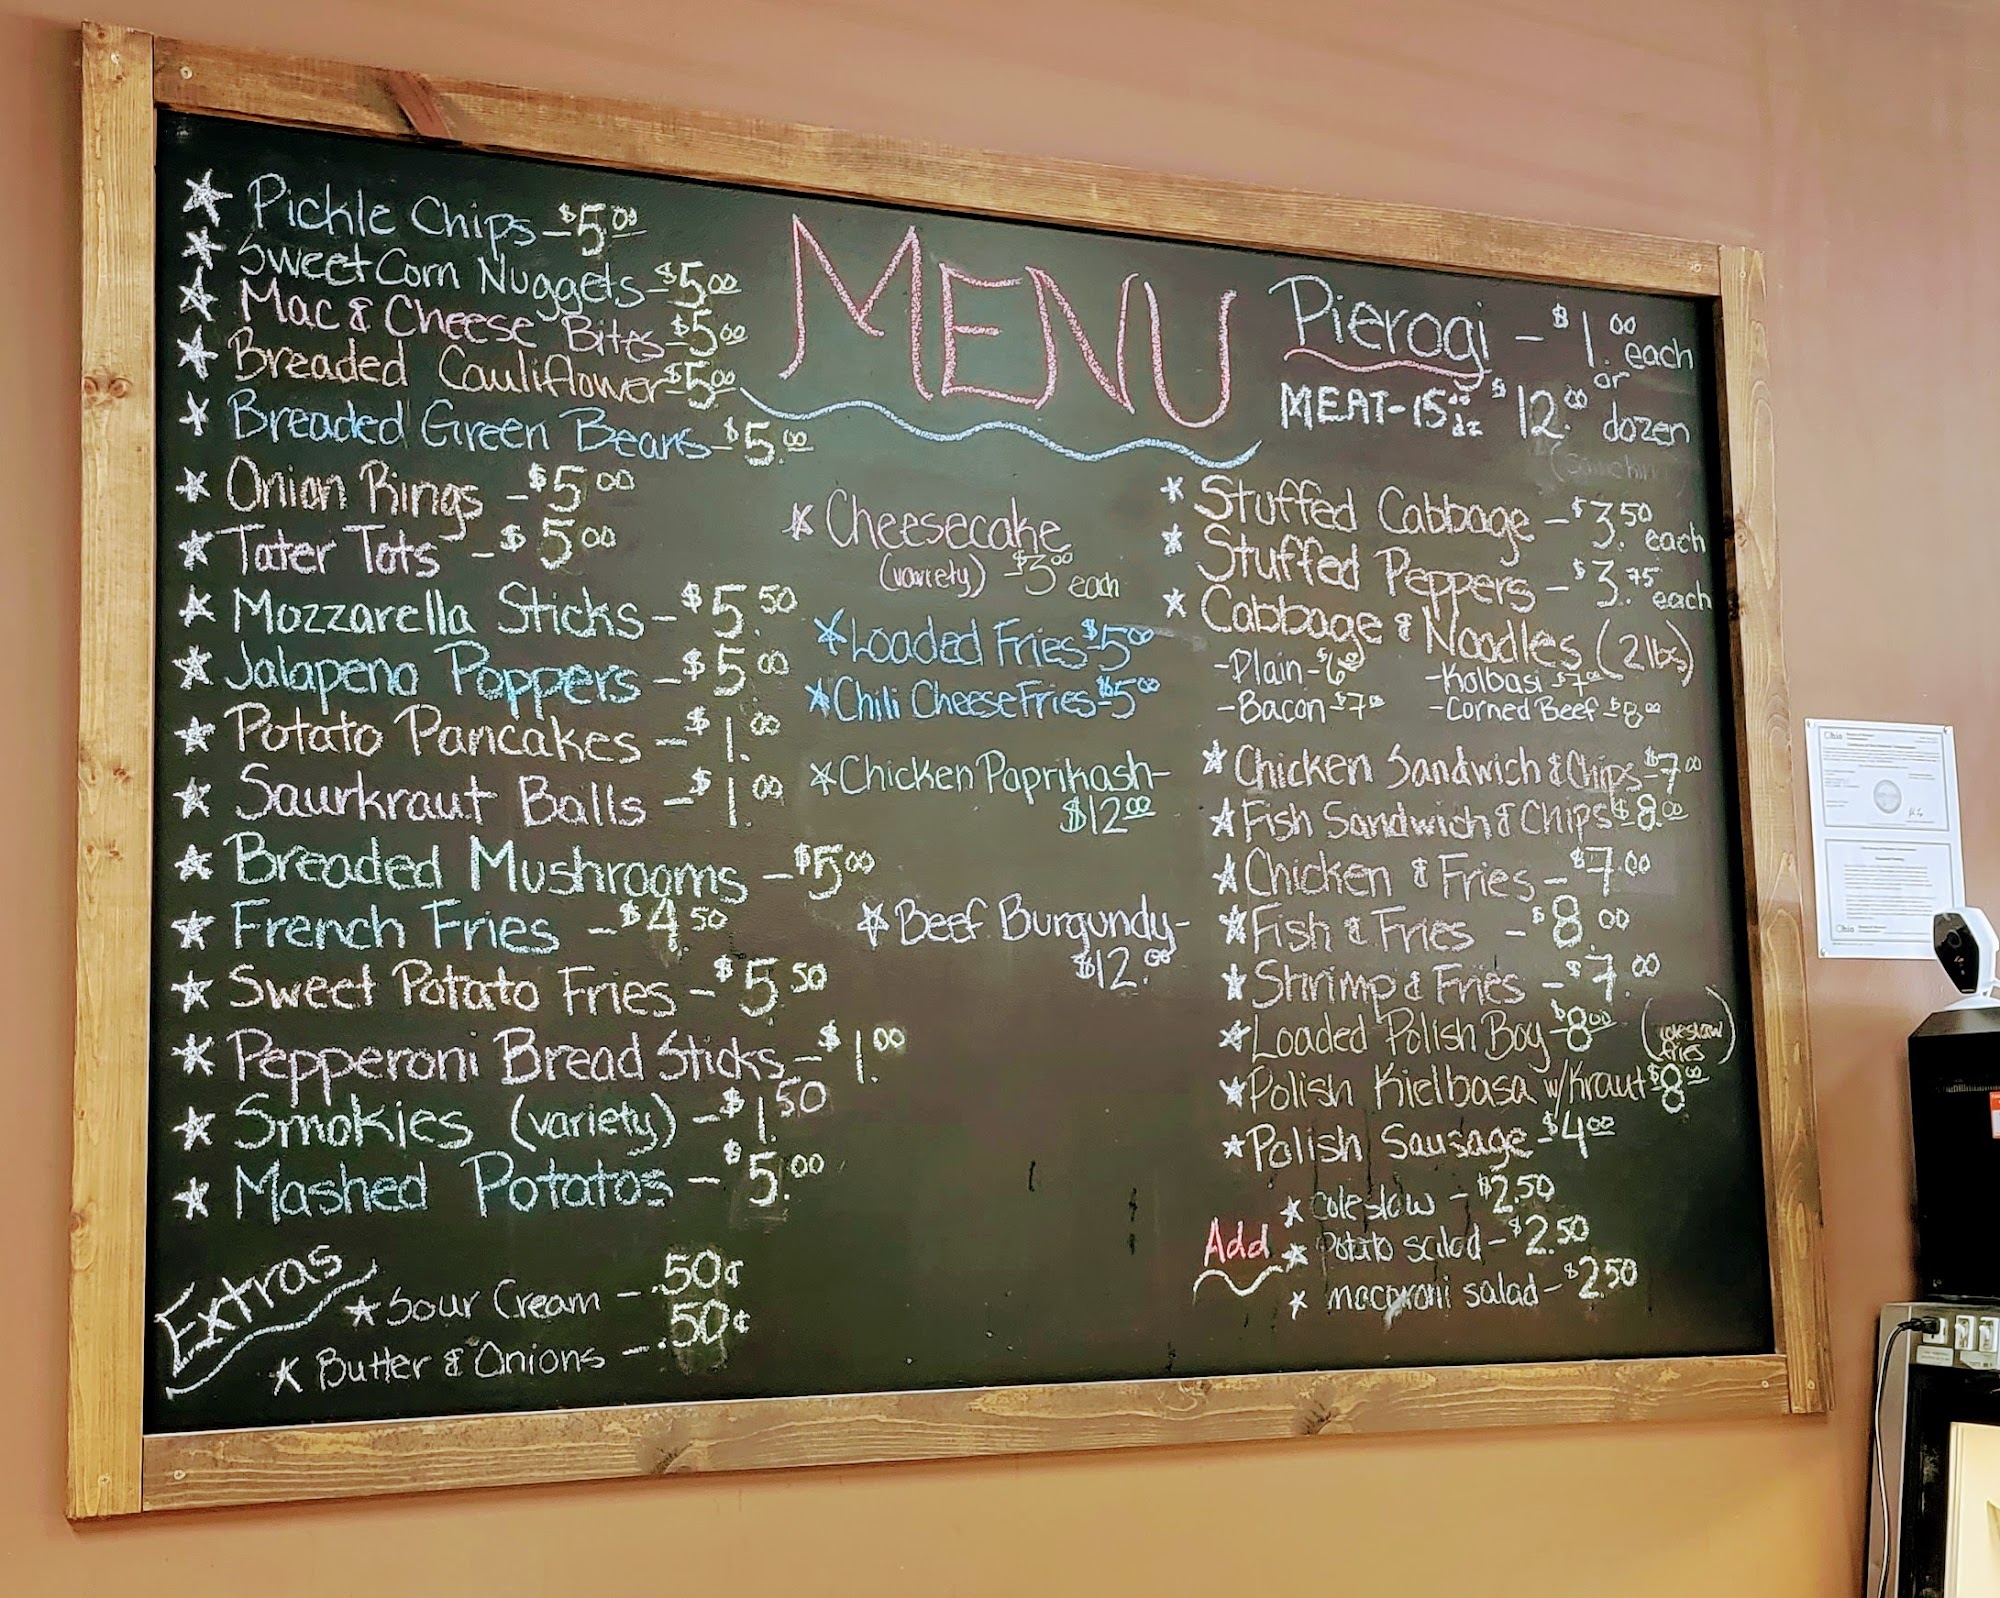 Pickle Chips - $5.00
Sweet Corn Nuggets - $5.00
Mac & Cheese Bites - $5.00
Breaded Cauliflower - $5.00
Breaded Green Beans - $5.00
Onion Rings - $5.00
Tater Tots - $5.00
Mozzarella Sticks - $5.50
Jalapeno Poppers - $5.00
Potato Pancakes - $1.00
Saurkraut Balls - $1.00
Breaded Mushrooms - $5.00
French Fries - $4.50
Sweet Potato Fries - $5.50
Pepperoni Bread Sticks - $1.00
Smokies (variety) - $1.50
Mashed Potatos - $5.00
Extras
Sour Cream - .50¢
Butter & Onions - .50¢
MENU
Cheesecake
(variety) - $3.00 each
Loaded Fries - $5.00
Chili Cheese Fries - $5.00
Chicken Paprikash -
$12.00
Beef Burgundy -
$12.00
Pierogi - $1.00 each
or
MEAT - 15.00 dz $12.00 dozen
Stuffed Cabbage - $3.50 each
Stuffed Peppers - $3.75 each
Cabbage & Noodles (2 lbs)
- Plain - $6.00 - Kolbasi - $7.00
- Bacon - $7.00 - Corned Beef - $8.00
Chicken Sandwich & Chips - $7.00
Fish Sandwich & Chips - $8.00
Chicken & Fries - $7.00
Fish & Fries - $8.00
Shrimp & Fries - $7.00
Loaded Polish Boy - $8.00 (coleslaw
fries)
Polish Kielbasa w/Kraut - $8.00
Polish Sausage - $4.00
Add
coleslaw - $2.50
Potato salad - $2.50
macaroni salad - $2.50
Ohio
Ohio